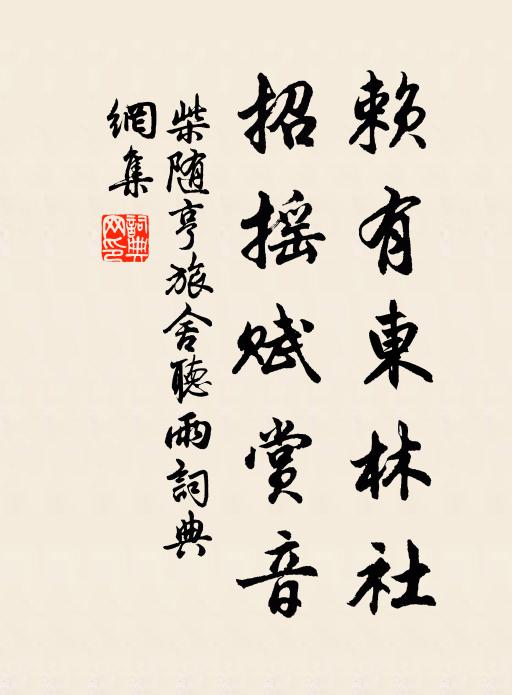 賴有東林社
招摇赋赏音
柴随亨旅舍聽雨詞典
網集
詞典
网印